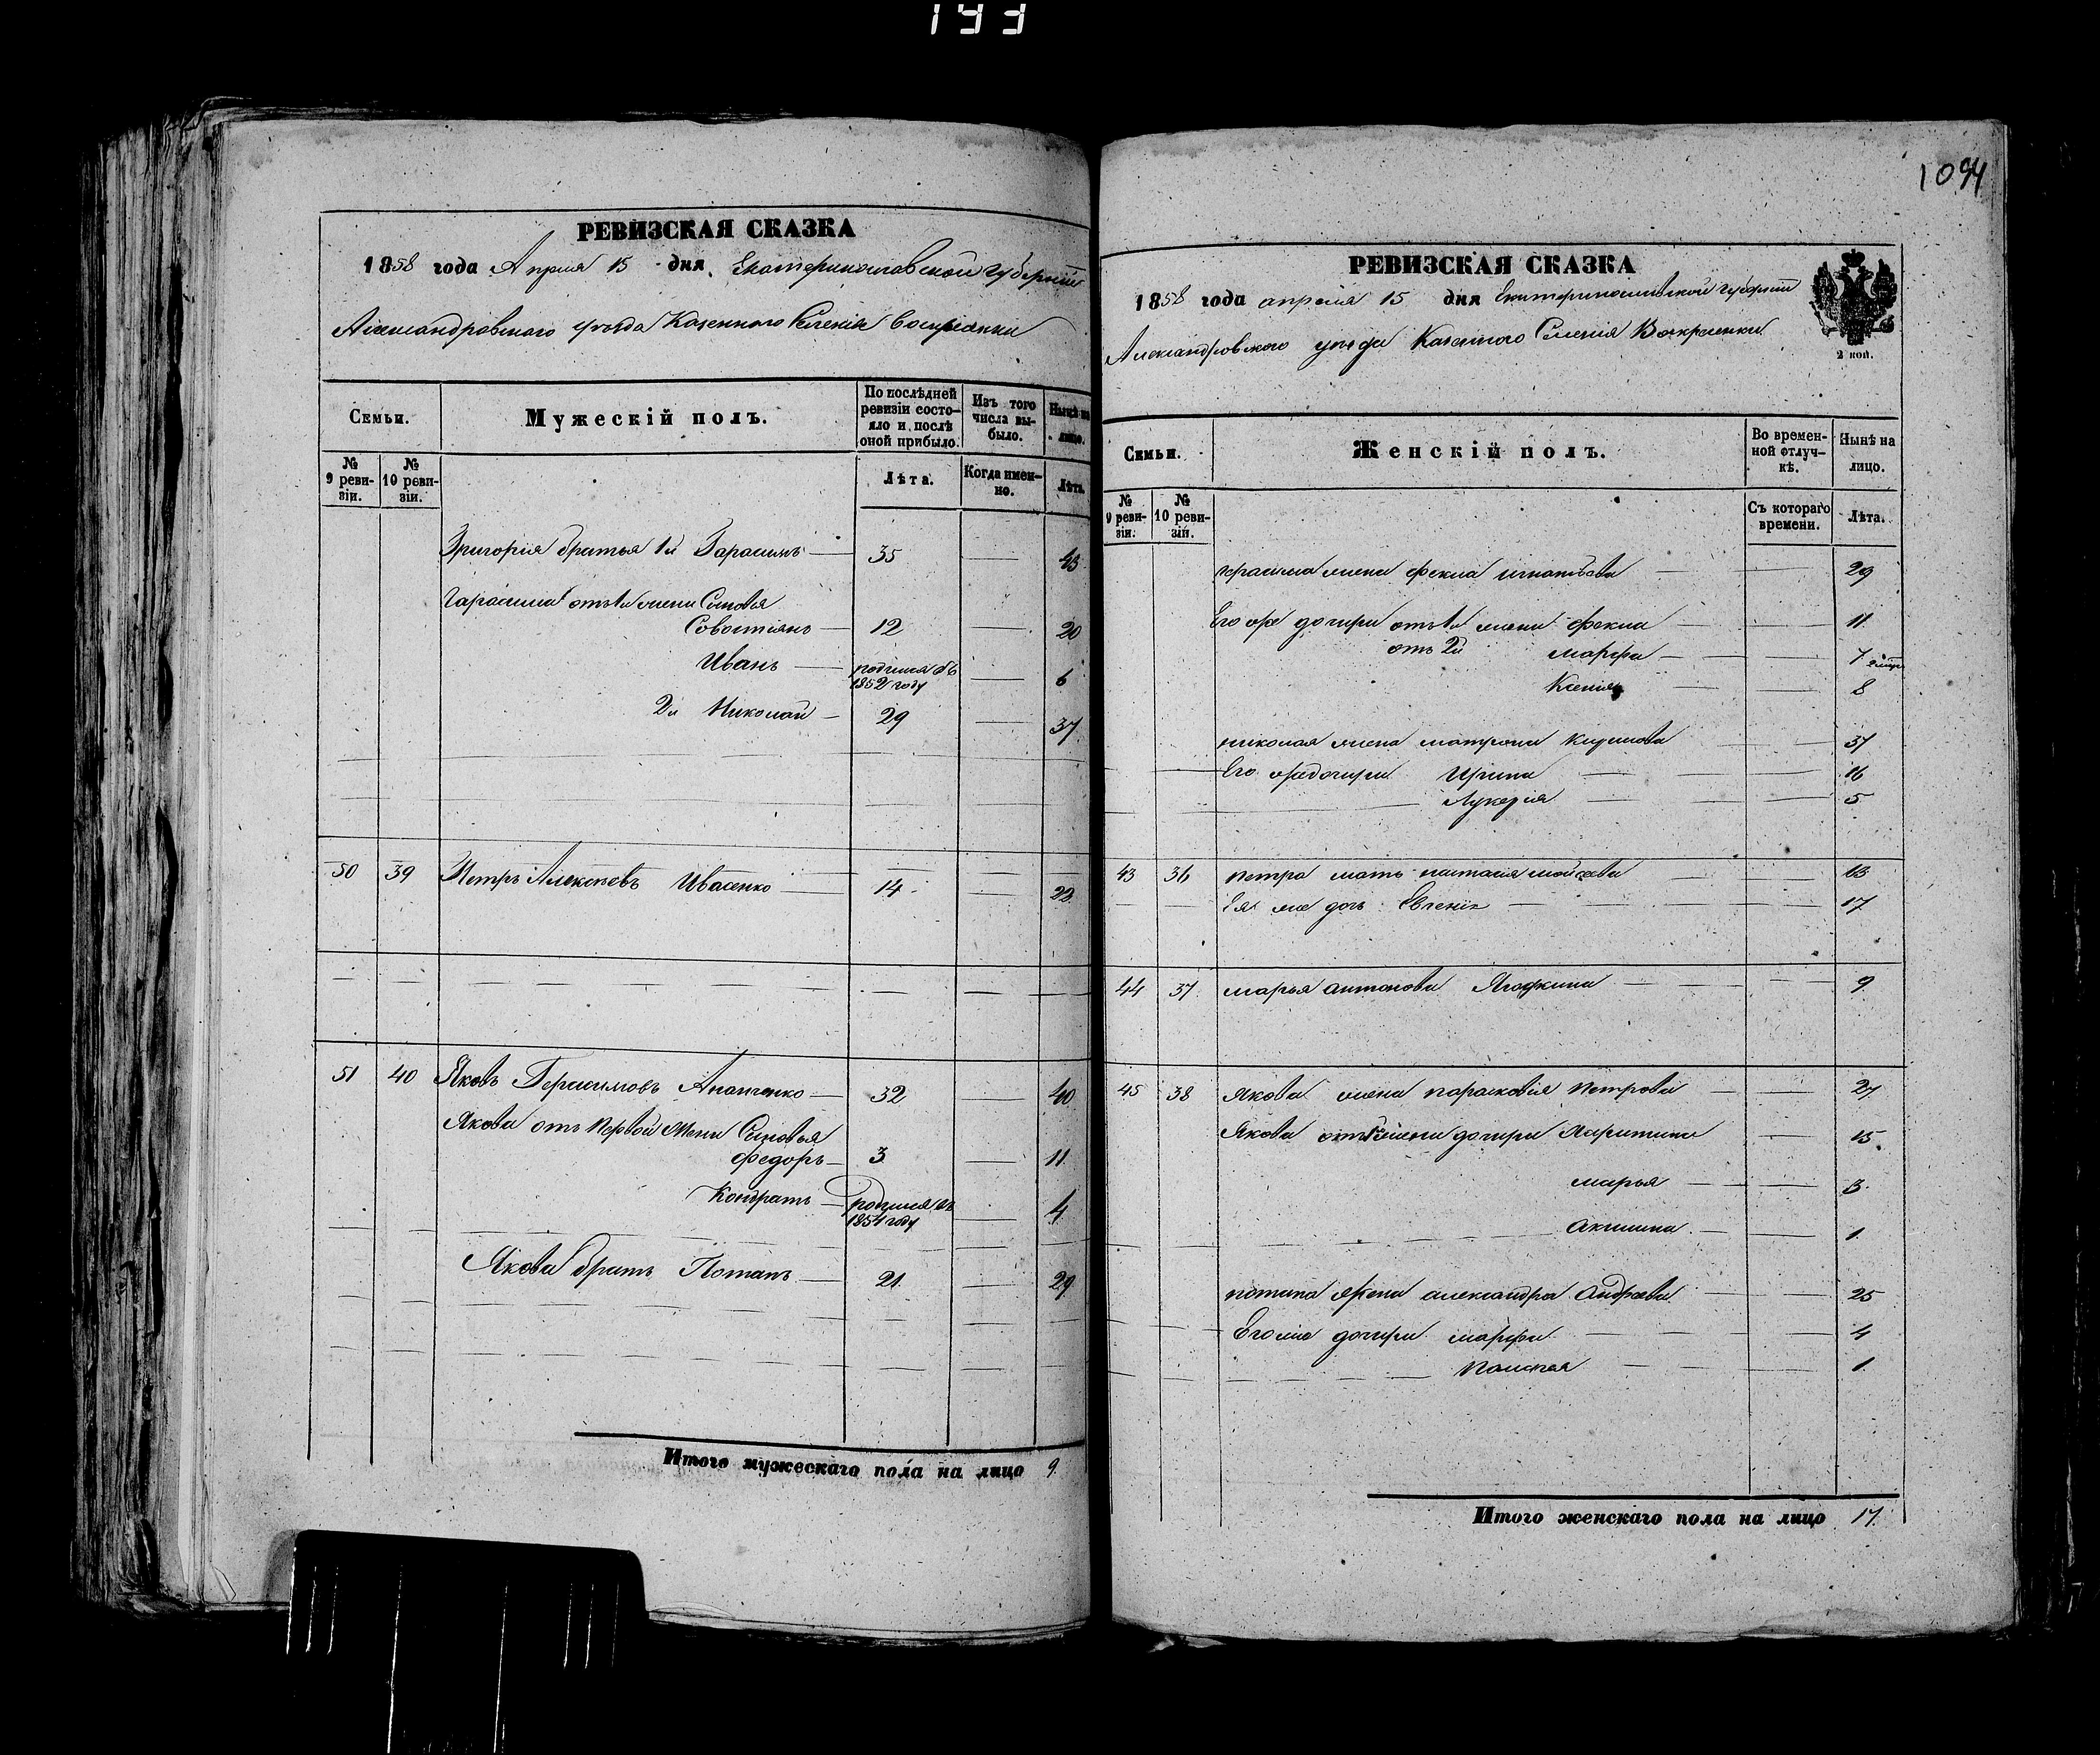 193
1094
РЕВИЗСКАЯ СКАЗКА
1858 года Апреля 15 дня Екатеринославской губернiи
Александровскаго уезда Казеннаго Селенiя Воскресенки
Семьи.
Мужескiй полъ.
По послѣдней ревизiи состояло и послѣ оной прибыло.
Изъ того числа выбыло.
Нынѣ на лицо.
№ 9 ревизiи.
№ 10 ревизiи.
Лѣта.
Когда именно.
Лѣта.
Григорiя братья 1й Гарасимъ — 35 — 43
Гарасима отъ 1й жены Сыновья
Совостiянъ — 12 — 20
Иванъ — родился въ 1852 году — 6
2й Николай — 29 — 37
50 39 Петръ Алексѣевъ Ивасенко 14 — 22
51 40 Яковъ Герасимовъ Ананченко — 32 — 40
Якова отъ первой жены Сыновья
Федоръ — 3 — 11
Кондратъ — родился въ 1854 году — 4
Якова братъ Потапъ — 21 — 29
Итого мужескаго пола на лицо 9
РЕВИЗСКАЯ СКАЗКА
1858 года апреля 15 дня Екатеринославской губернiи
Александровского уезда Казенного Селенiя Воскресенки
2 коп.
Семьи.
Женскiй полъ.
Во временной отлучкѣ.
Нынѣ на лицо.
№ 9 ревизiи.
№ 10 ревизiи.
Съ котораго времени.
Лѣта.
герасима жена фекла игнатьева — 29
Его же дочери отъ 1й жены фекла — 11
отъ 2й марфа — 7
Ксенiя — 8
николая жена матрона — 37
Его же дочери Ирина — 16
Лукерiя — 5
43 36 петра мать настасия мойсеева
Ея же дочь Евгенiя — 17
44 37 марья антонова Ягодкина — 9
45 38 Якова жена парасковiя Петрова — 27
Якова отъ жены дочери Харитина — 15
марья — 3
Акилина — 1
потапа жена александра Андреева — 25
Его же дочери марфа — 4
Пелагея — 1
Итого женскаго пола на лицо 17